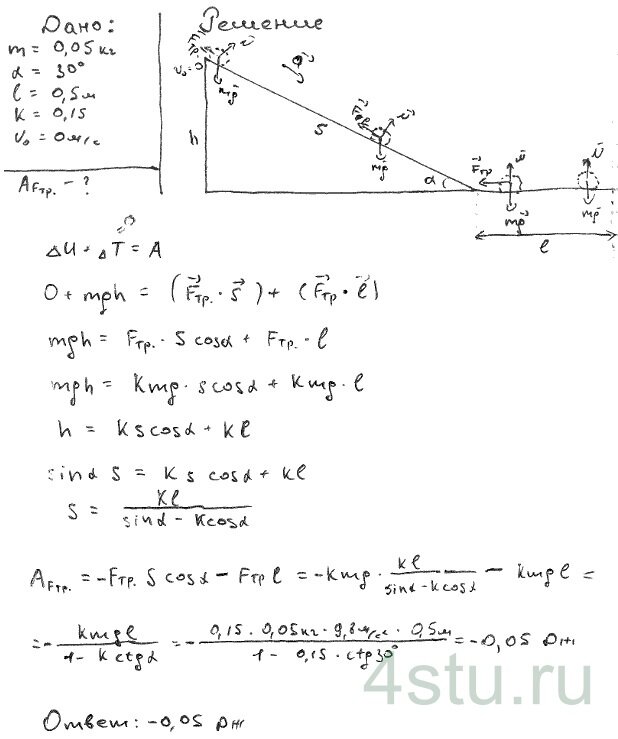 Дано:
m = 0,05 кг
α = 30°
l = 0,5 м
K = 0,15
v₀ = 0 м/с
A_Fтр. - ?
Решение
v₀ = 0
h
S
α
F⃗тр
N⃗
mg⃗
l
ΔU + ΔT = A
0 + mgh = (F⃗тр. · s⃗) + (F⃗тр · l⃗)
mgh = Fтр. · S cosα + Fтр. · l
mgh = Kmg · s cosα + Kmg · l
h = K s cosα + Kl
sinα s = K s cosα + Kl
S = Kl / (sinα - K cosα)
A_Fтр. = -Fтр. S cosα - Fтр l = -Kmg · Kl / (sinα - K cosα) - Kmg l =
= - Kmgl / (1 - K ctgα) = - 0,15 · 0,05 кг · 9,8 м/с² · 0,5 м / (1 - 0,15 · ctg 30°) = -0,05 Дж
4stu.ru
Ответ: -0,05 Дж